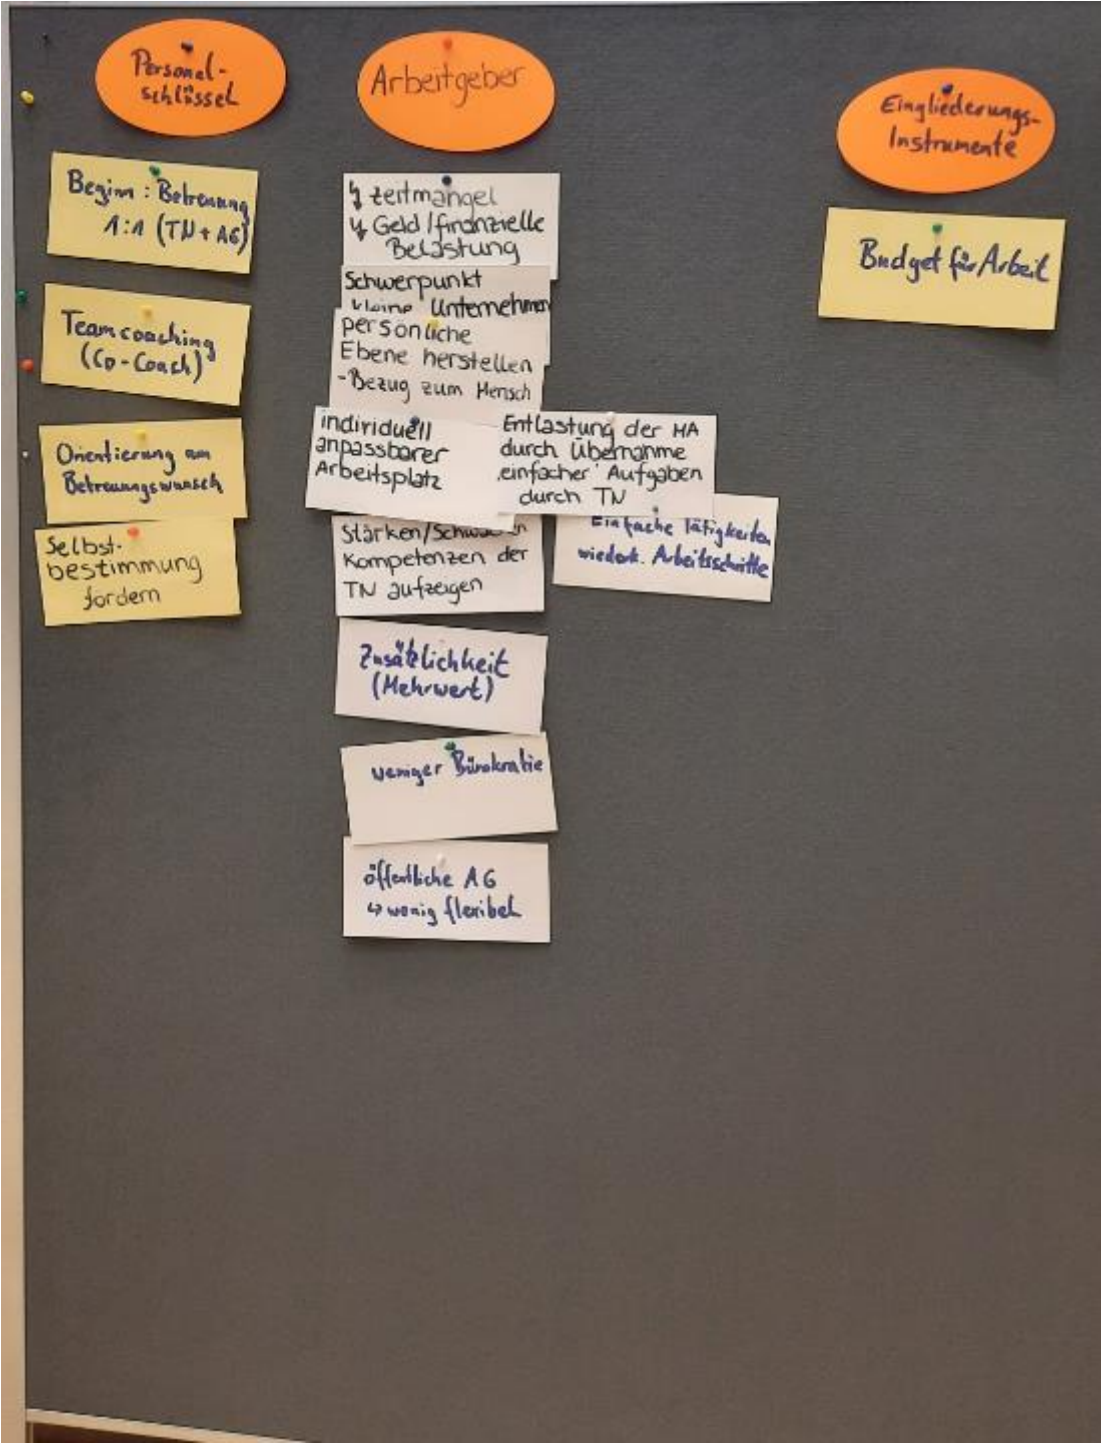 Personal-
schlüssel
Beginn: Betreuung
1:1 (TN + AG)
Teamcoaching
(Co-Coach)
Orientierung am
Betreuungswunsch
Selbst-
bestimmung
fördern
Arbeitgeber
↯ Zeitmangel
↯ Geld/finanzielle
Belastung
Schwerpunkt
kleine Unternehmen
persönliche
Ebene herstellen
-Bezug zum Mensch
individuell
anpassbarer
Arbeitsplatz
Entlastung der MA
durch Übernahme
einfacher Aufgaben
durch TN
Stärken/Schwächen
Kompetenzen der
TN aufzeigen
Einfache Tätigkeiten
wiederk. Arbeitsschritte
Zusätzlichkeit
(Mehrwert)
weniger Bürokratie
öffentliche AG
↳ wenig flexibel
Eingliederungs-
Instrumente
Budget für Arbeit